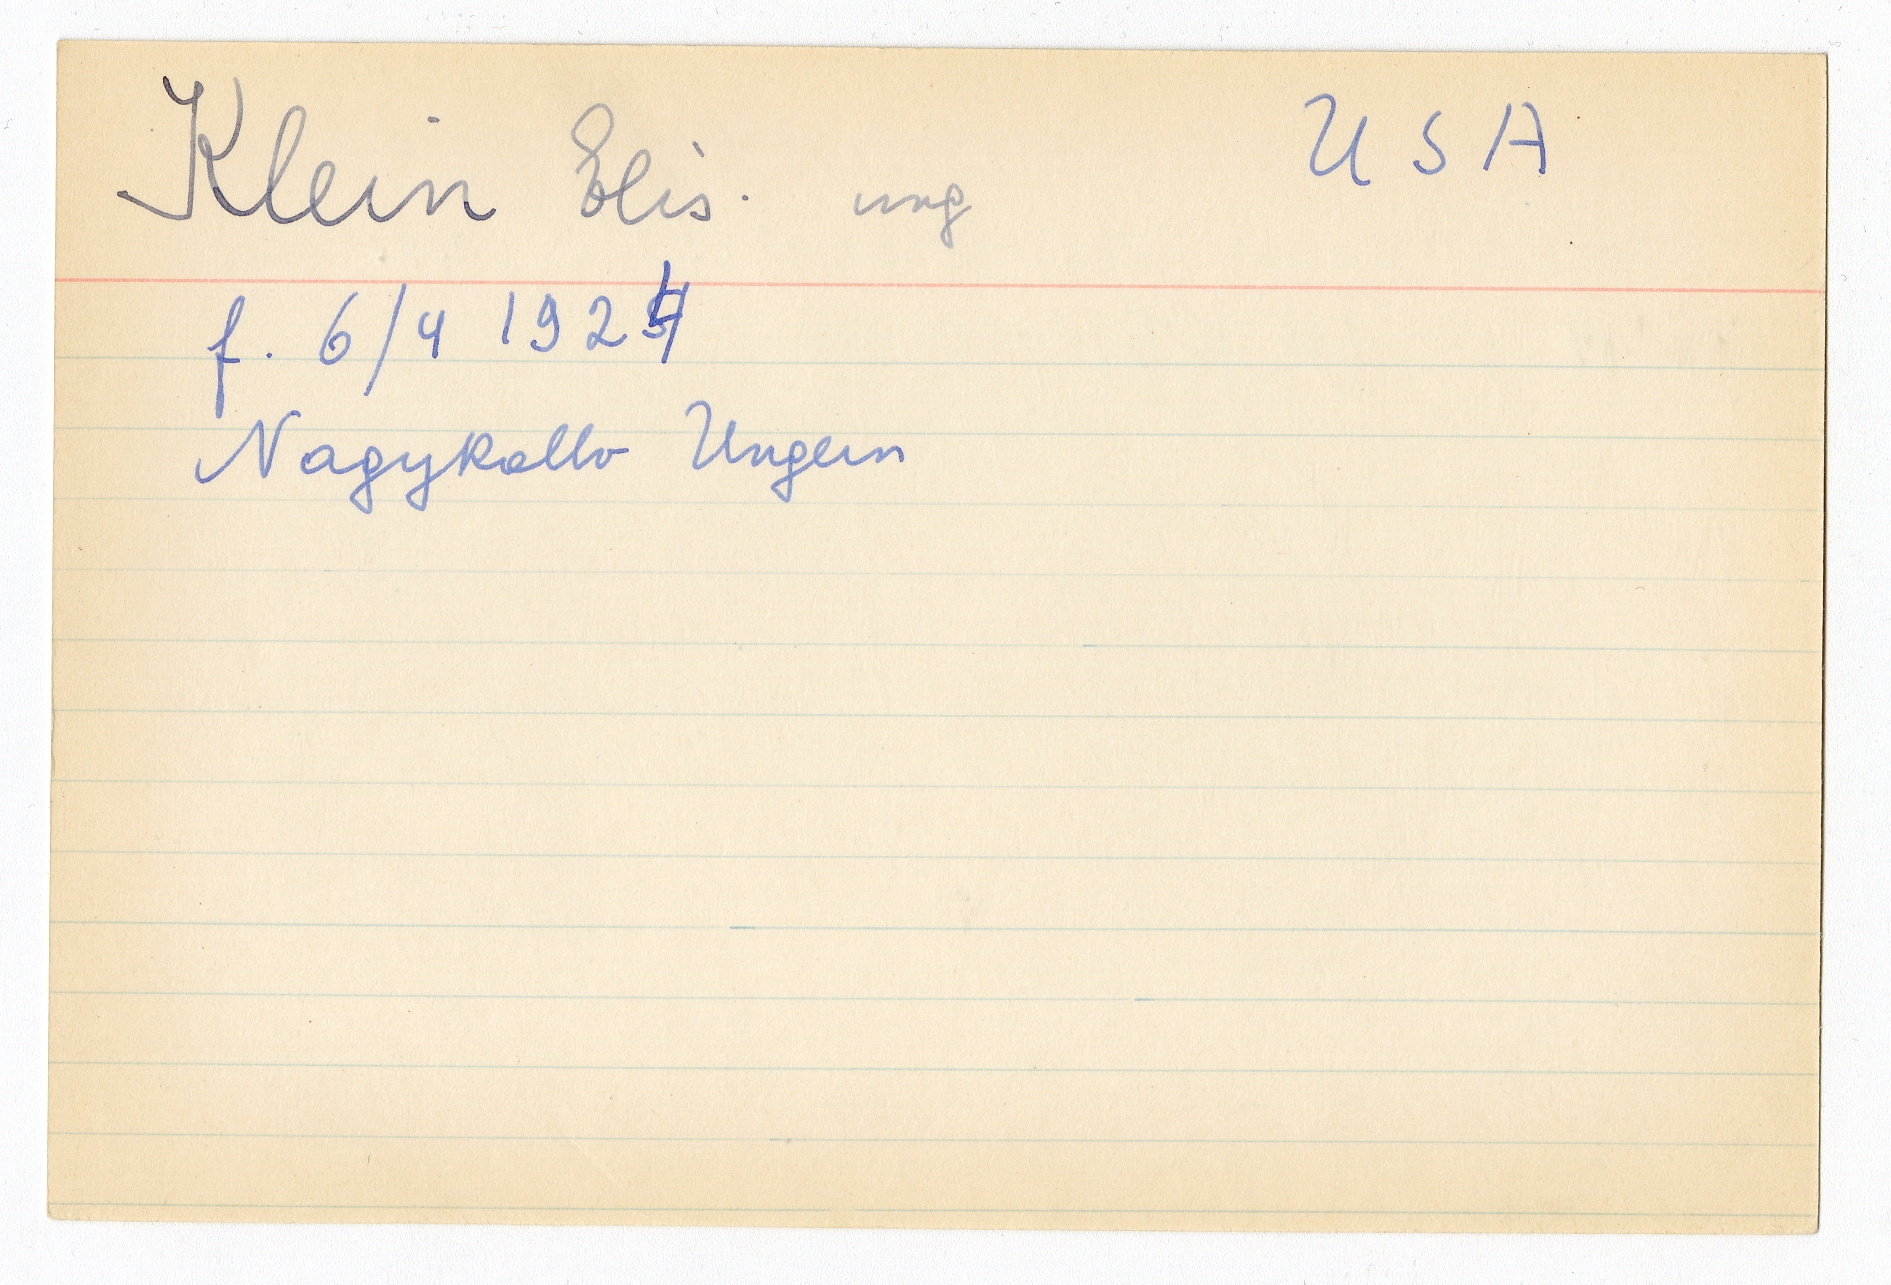 Klein Elis. ung USA
f. 6/4 1924
Nagykallo Ungern